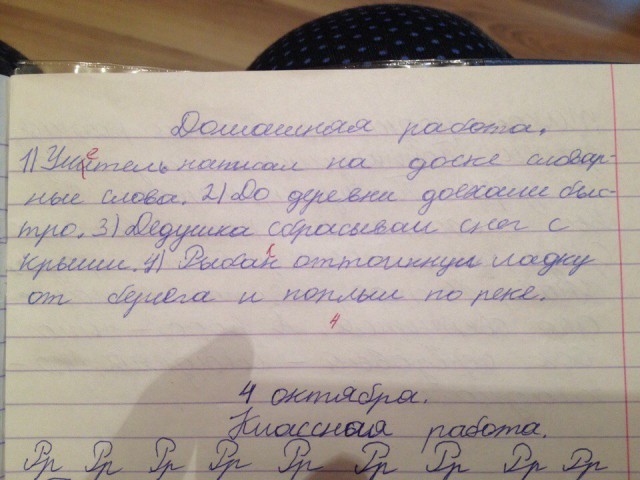 Домашняя работа.
1) Учитель написал на доске словар-
ные слова. 2) До деревни доехали быс-
тро. 3) Дедушка сбрасывал снег с
крыши. 4) Рыбак оттолкнул лодку
от берега и поплыл по реке.
4
4 октября.
Классная работа.
Рр Рр Рр Рр Рр Рр Рр Рр Рр